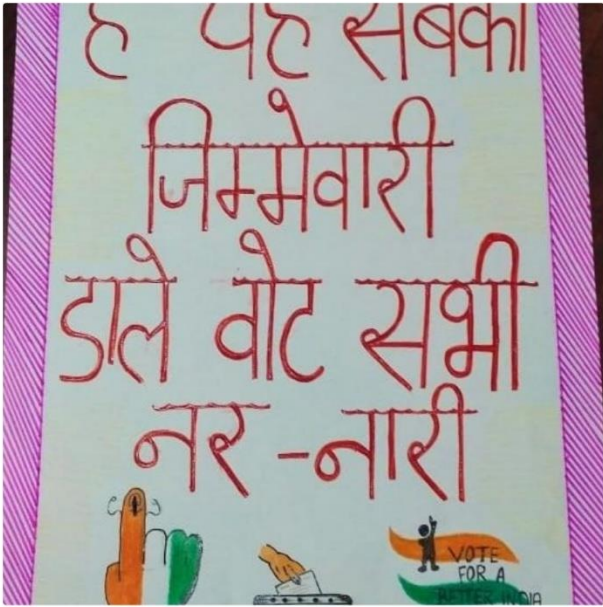 है यह सबकी
जिम्मेवारी
डाले वोट सभी
नर-नारी
VOTE
FOR A
BETTER INDIA